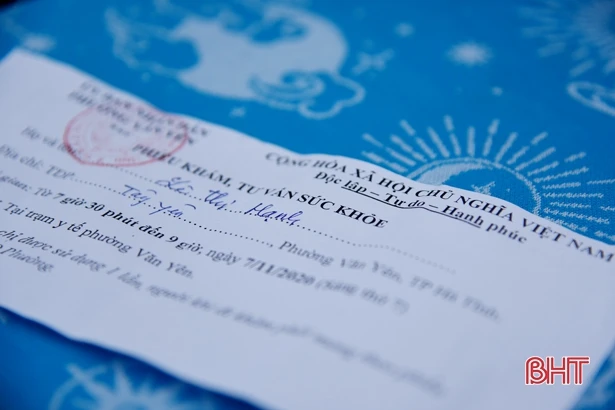 ỦY BAN NHÂN DÂN
PHƯỜNG VĂN YÊN
CỘNG HÒA XÃ HỘI CHỦ NGHĨA VIỆT NAM
Độc lập – Tự do – Hạnh phúc
PHIẾU KHÁM, TƯ VẤN SỨC KHỎE
Họ và tên: Thị Hạnh
Địa chỉ: TDP Tây Yên, Phường Văn Yên, TP Hà Tĩnh.
gian: Từ 7 giờ 30 phút đến 9 giờ, ngày 7/11/2020 (sáng thứ 7)
Tại trạm y tế phường Văn Yên.
chỉ được sử dụng 1 lần, người khi đi khám
phường.
BHT